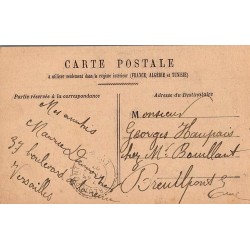 CARTE POSTALE
à utiliser seulement dans le régime intérieur (FRANCE, ALGÉRIE et TUNISIE)
Partie réservée à la correspondance
Adresse du Destinataire
Mes amitiés
Maurice
37 boulevard de la reine
Versailles
Monsieur
Georges Haupais
chez Mr Bouillant
Breuilpont
Eure